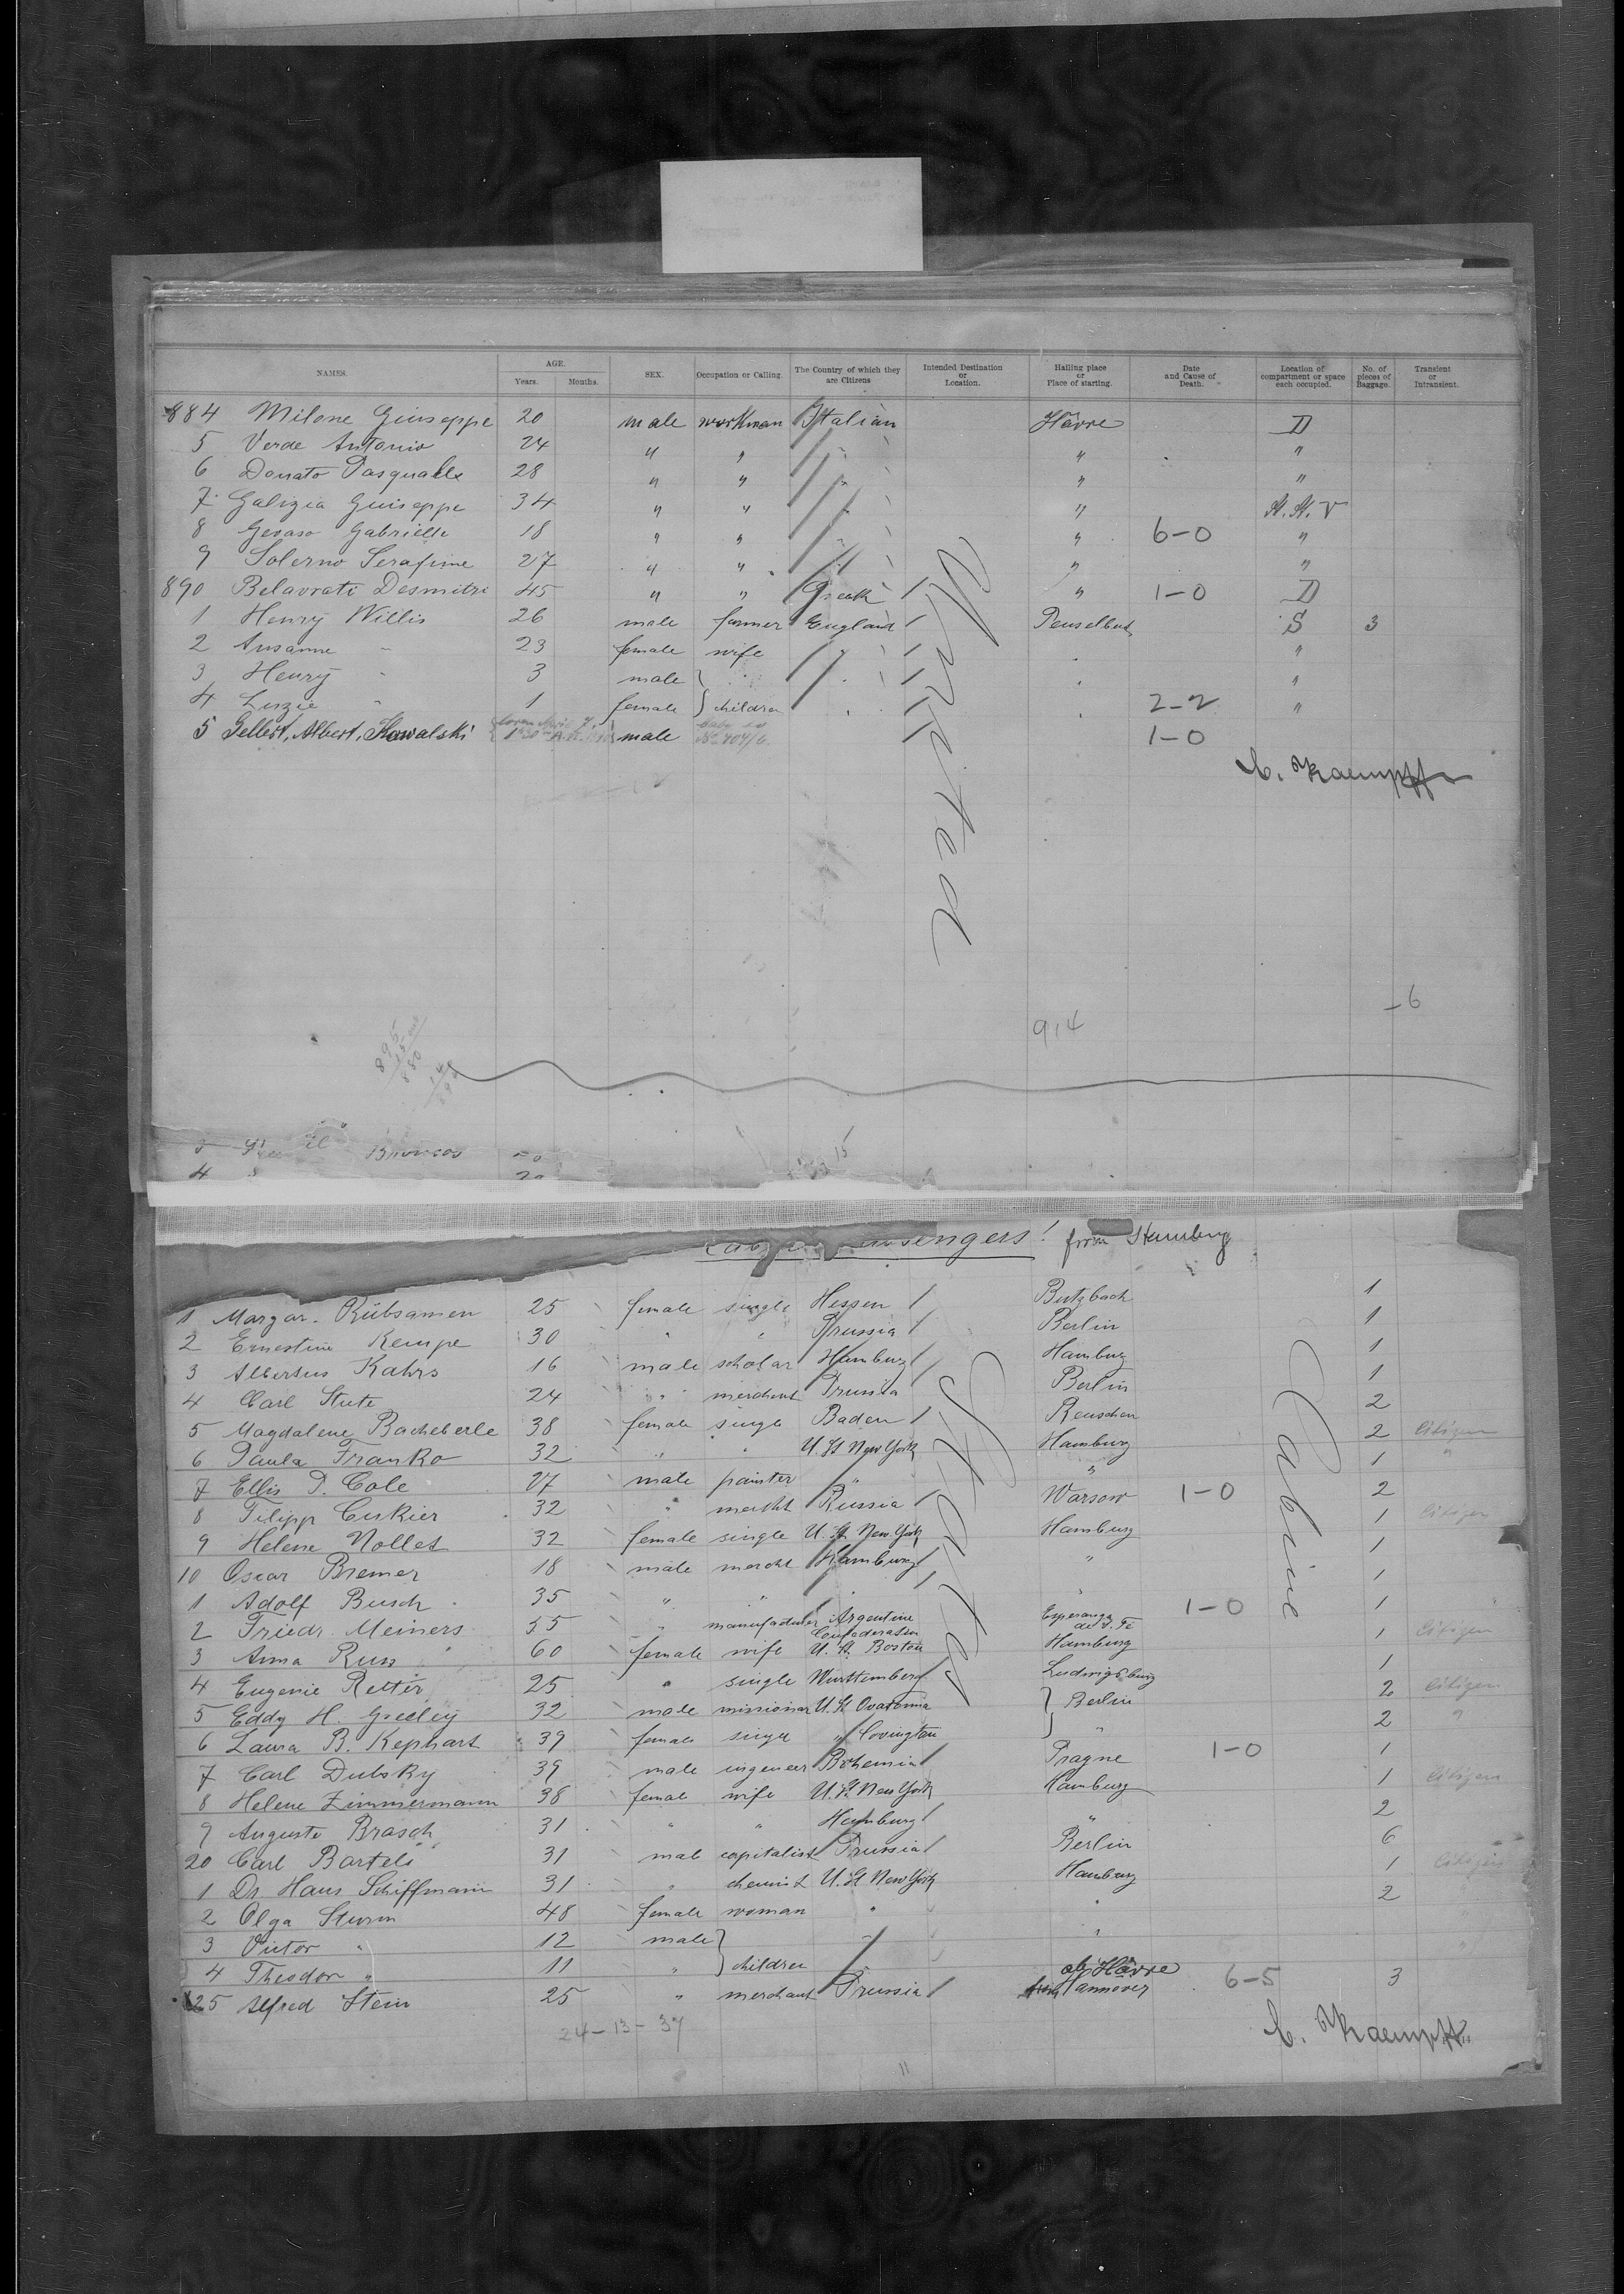 NAMES. AGE. SEX. Occupation or Calling. The Country of which they are Citizens Intended Destination or Location. Hailing place or Place of starting. Date and Cause of Death. Location of compartment or space each occupied. No. of pieces of Baggage. Transient or Intransient.
Years. Months.
884 Milone Giuseppe 20 male workman Italian Hâvre D
5 Verde Antonio 24 " " " " "
6 Donato Pasquale 28 " " " " "
7 Galizia Guiseppe 34 " " " " H.H.V
8 Gesaso Gabrielle 18 " " " " 6-0 "
9 Solerno Serafine 27 " " " " "
890 Belavrati Desmitri 45 " " Greek " 1-0 D
1 Henry Willis 26 male farmer England S 3
2 Susanne " 23 female wife " "
3 Henry " 3 male " "
4 Lizzie " 1 female children " 2-2 "
5 Gellert, Albert, Kowalski male 1-0
C. Kaempff
United
- 6
914
895
15
880
Bronços
4
Passengers! from Hamburg
1 Margar. Rübsamen 25 female single Hessen Butzbach 1
2 Ernestine Kempe 30 " " Prussia Berlin 1
3 Albertus Kahrs 16 male scholar Hamburg Hamburg 1
4 Carl Stute 24 " merchant Prussia Berlin 1
5 Magdalene Bacheberle 38 female single Baden Renschen 2
6 Paula Franko 32 " " U. St New York Hamburg 2 Citizen
7 Ellis D. Cole 27 male painter " " 1 "
8 Filipp Cukier 32 " mercht Russia Warsow 1-0 2
9 Helene Nollet 32 female single U. St. New York Hamburg 1 Citizen
10 Oscar Bremer 18 male mercht Hamburg " 1
1 Adolf Busch 35 " " " " 1
2 Friedr Meiners 55 " manufacturer Argentine Confederation Esperanza de S. Fe 1-0 1
3 Anna Russ 60 female wife U. St. Boston Hamburg 1 Citizen
4 Eugenie Retter 25 " single Württemberg Ludwigsburg 1
5 Eddy H. Greeley 32 male missionar U. St Ovatonna Berlin 2 Citizen
6 Laura B. Kephart 39 female single " Covington " 2 "
7 Carl Dubsky 39 male ingeneer Bohemia Pragne 1-0 1
8 Helene Zimmermann 38 female wife U. St. New York Hamburg 1 Citizen
9 Auguste Brasch 31 " " Hamburg " 2
20 Carl Bartels 31 mal capitalist Prussia Berlin 6
1 Dr. Hans Schiffmann 31 " chemist U. St New York Hamburg 1 Citizen
2 Olga Sturm 48 female woman " " 2
3 Victor " 12 male " "
4 Theodor " 11 " children "
ab Hâvre
25 Alfred Stein 25 " merchant Prussia from Hannover 6-5 3
24-13-37
C. Kaempff
United States
Cabine
11